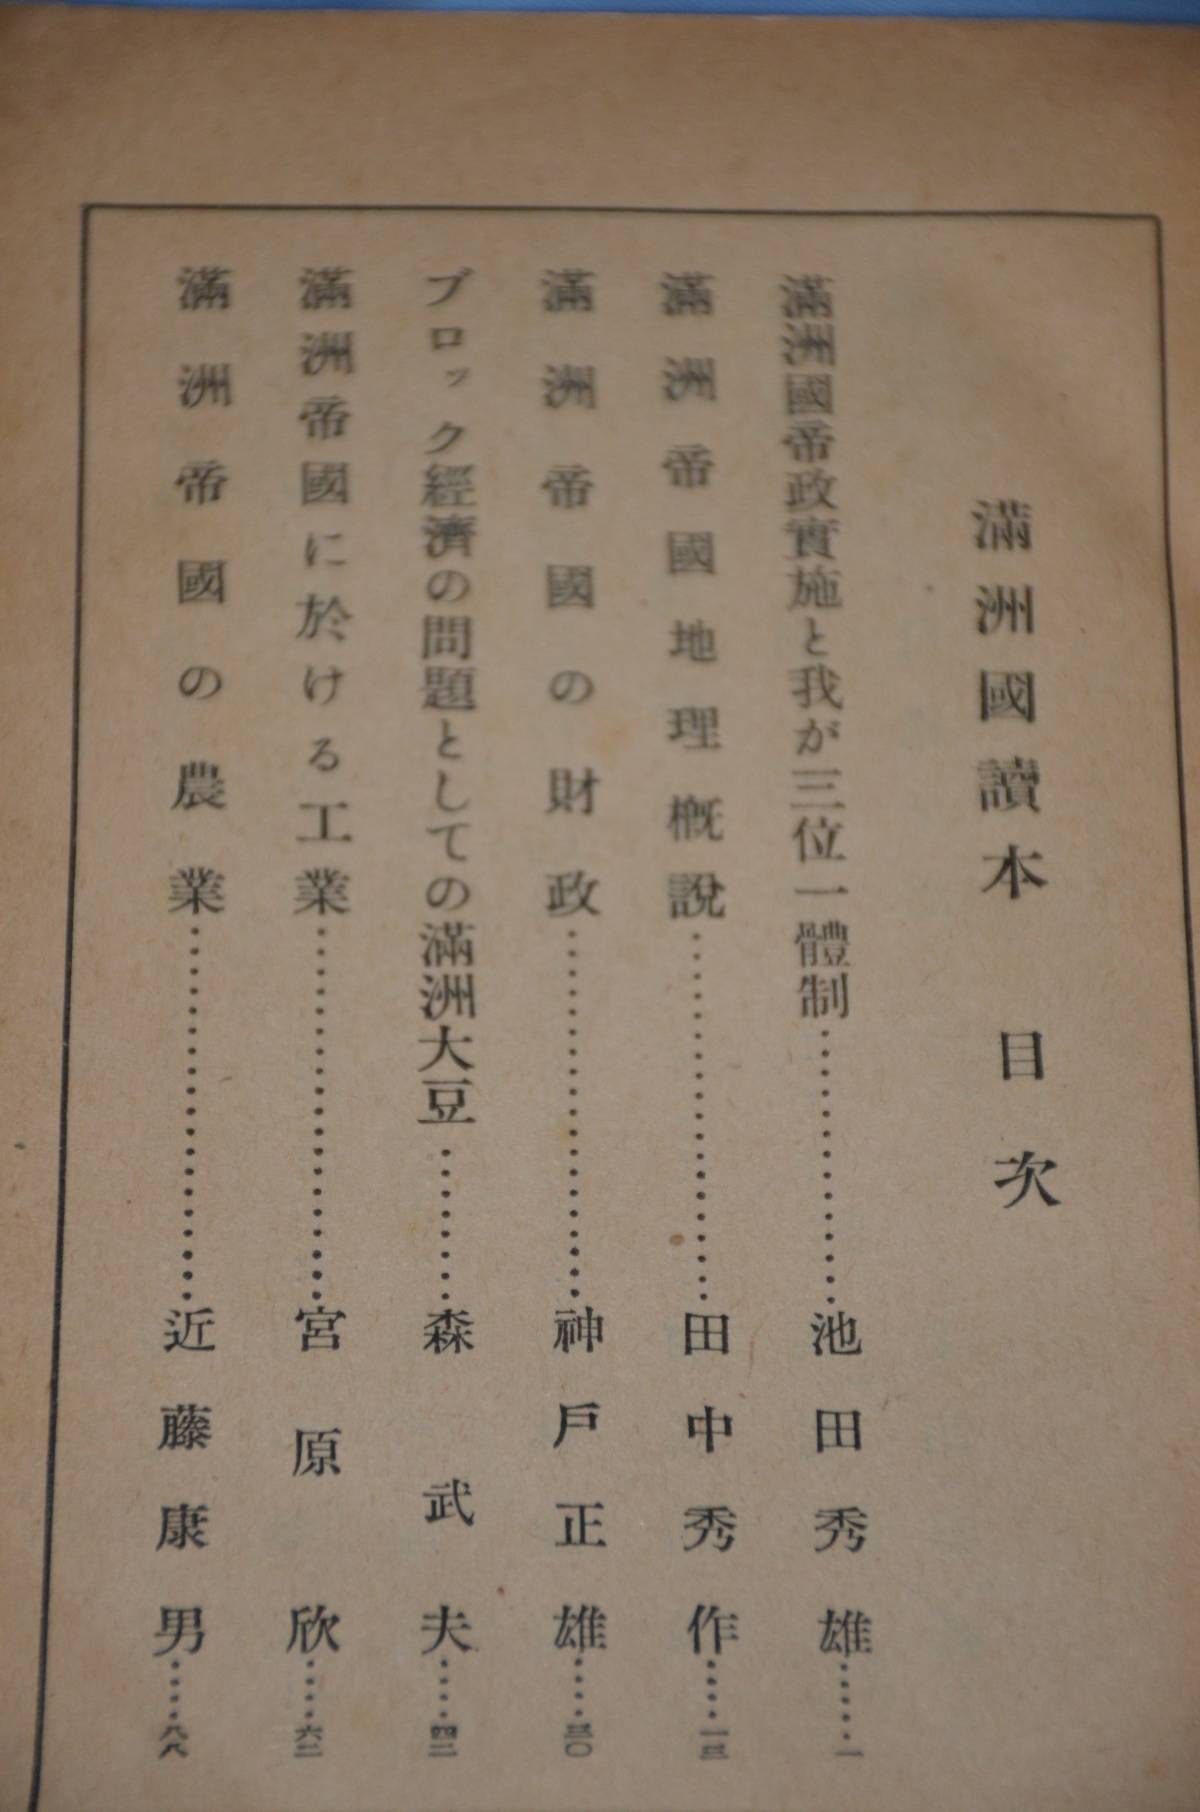 滿洲國讀本　目次
滿洲國帝政實施と我が三位一體制……………池田秀雄……一
滿洲帝國地理概說……………田中秀作……一三
滿洲帝國の財政……………神戶正雄……三〇
ブロック經濟の問題としての滿洲大豆………森武夫……四二
滿洲帝國に於ける工業……………宮原欣……六二
滿洲帝國の農業……………近藤康男……八八